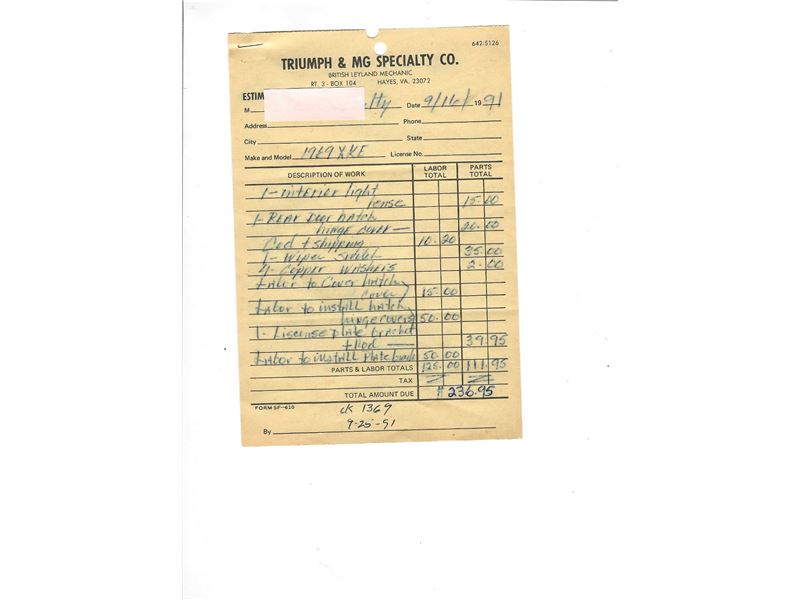 642-5126
TRIUMPH & MG SPECIALTY CO.
BRITISH LEYLAND MECHANIC
RT. 3 - BOX 104 HAYES, VA. 23072
ESTIM
M lty Date 9/16/ 1991
Address Phone
City State
Make and Model 1969 XKE License No.
DESCRIPTION OF WORK LABOR TOTAL PARTS TOTAL
1- interior light
lense 15.00
1- REAR Door hatch
hinge cover — 20.00
Cod + shipping 10.20
1- Wiper 35.00
4- Copper Washers 2.00
Labor to Cover hatch
cover 15.00
Labor to install hatch
hinge covers 50.00
1- Liscense Plate bracket
+ Rod — 39.95
Labor to install Plate 50.00
PARTS & LABOR TOTALS 125.00 111.95
TAX
TOTAL AMOUNT DUE # 236.95
FORM SF-610 ck 1369
9-25-91
By